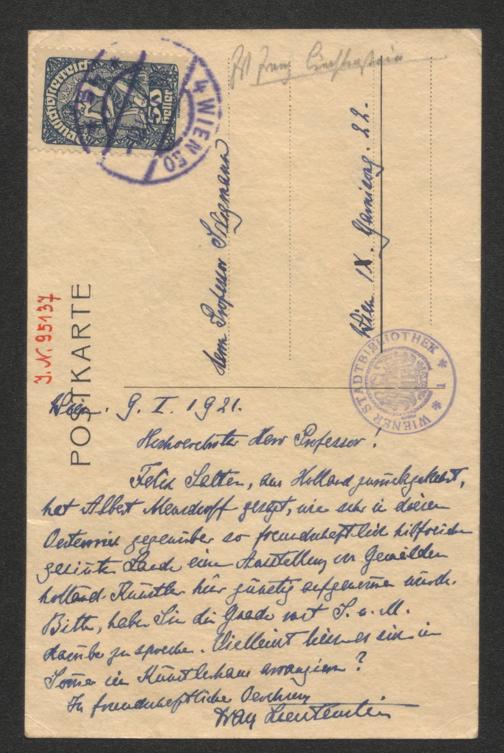 Pst Franz Liechtenstein
Deutschösterreich
50
4 WIEN 50
Herrn Professor Seligmann
Wien IX. Garnisong. 22.
J.N. 95137
POSTKARTE
WIENER STADTBIBLIOTHEK * 1 *
Wien. 9. I. 1921.
Hochverehrter Herr Professor!
Felix Salten, aus Holland zurückgekehrt,
hat Albert Mensdorff gesagt, wie sehr in diesem
Oesterreich gegenüber so freundschaftlich hilfreichen
gesinnten Lande eine Ausstellung von Gemälden
holländ. Künstler hier günstig aufgenommen würde.
Bitte, haben Sie die Gnade mit S. u. M.
darüber zu sprechen. Vielleicht liesse es sich im
Sommer im Künstlerhaus arrangieren?
In freundschaftlicher Verehrung
Franz Liechtenstein